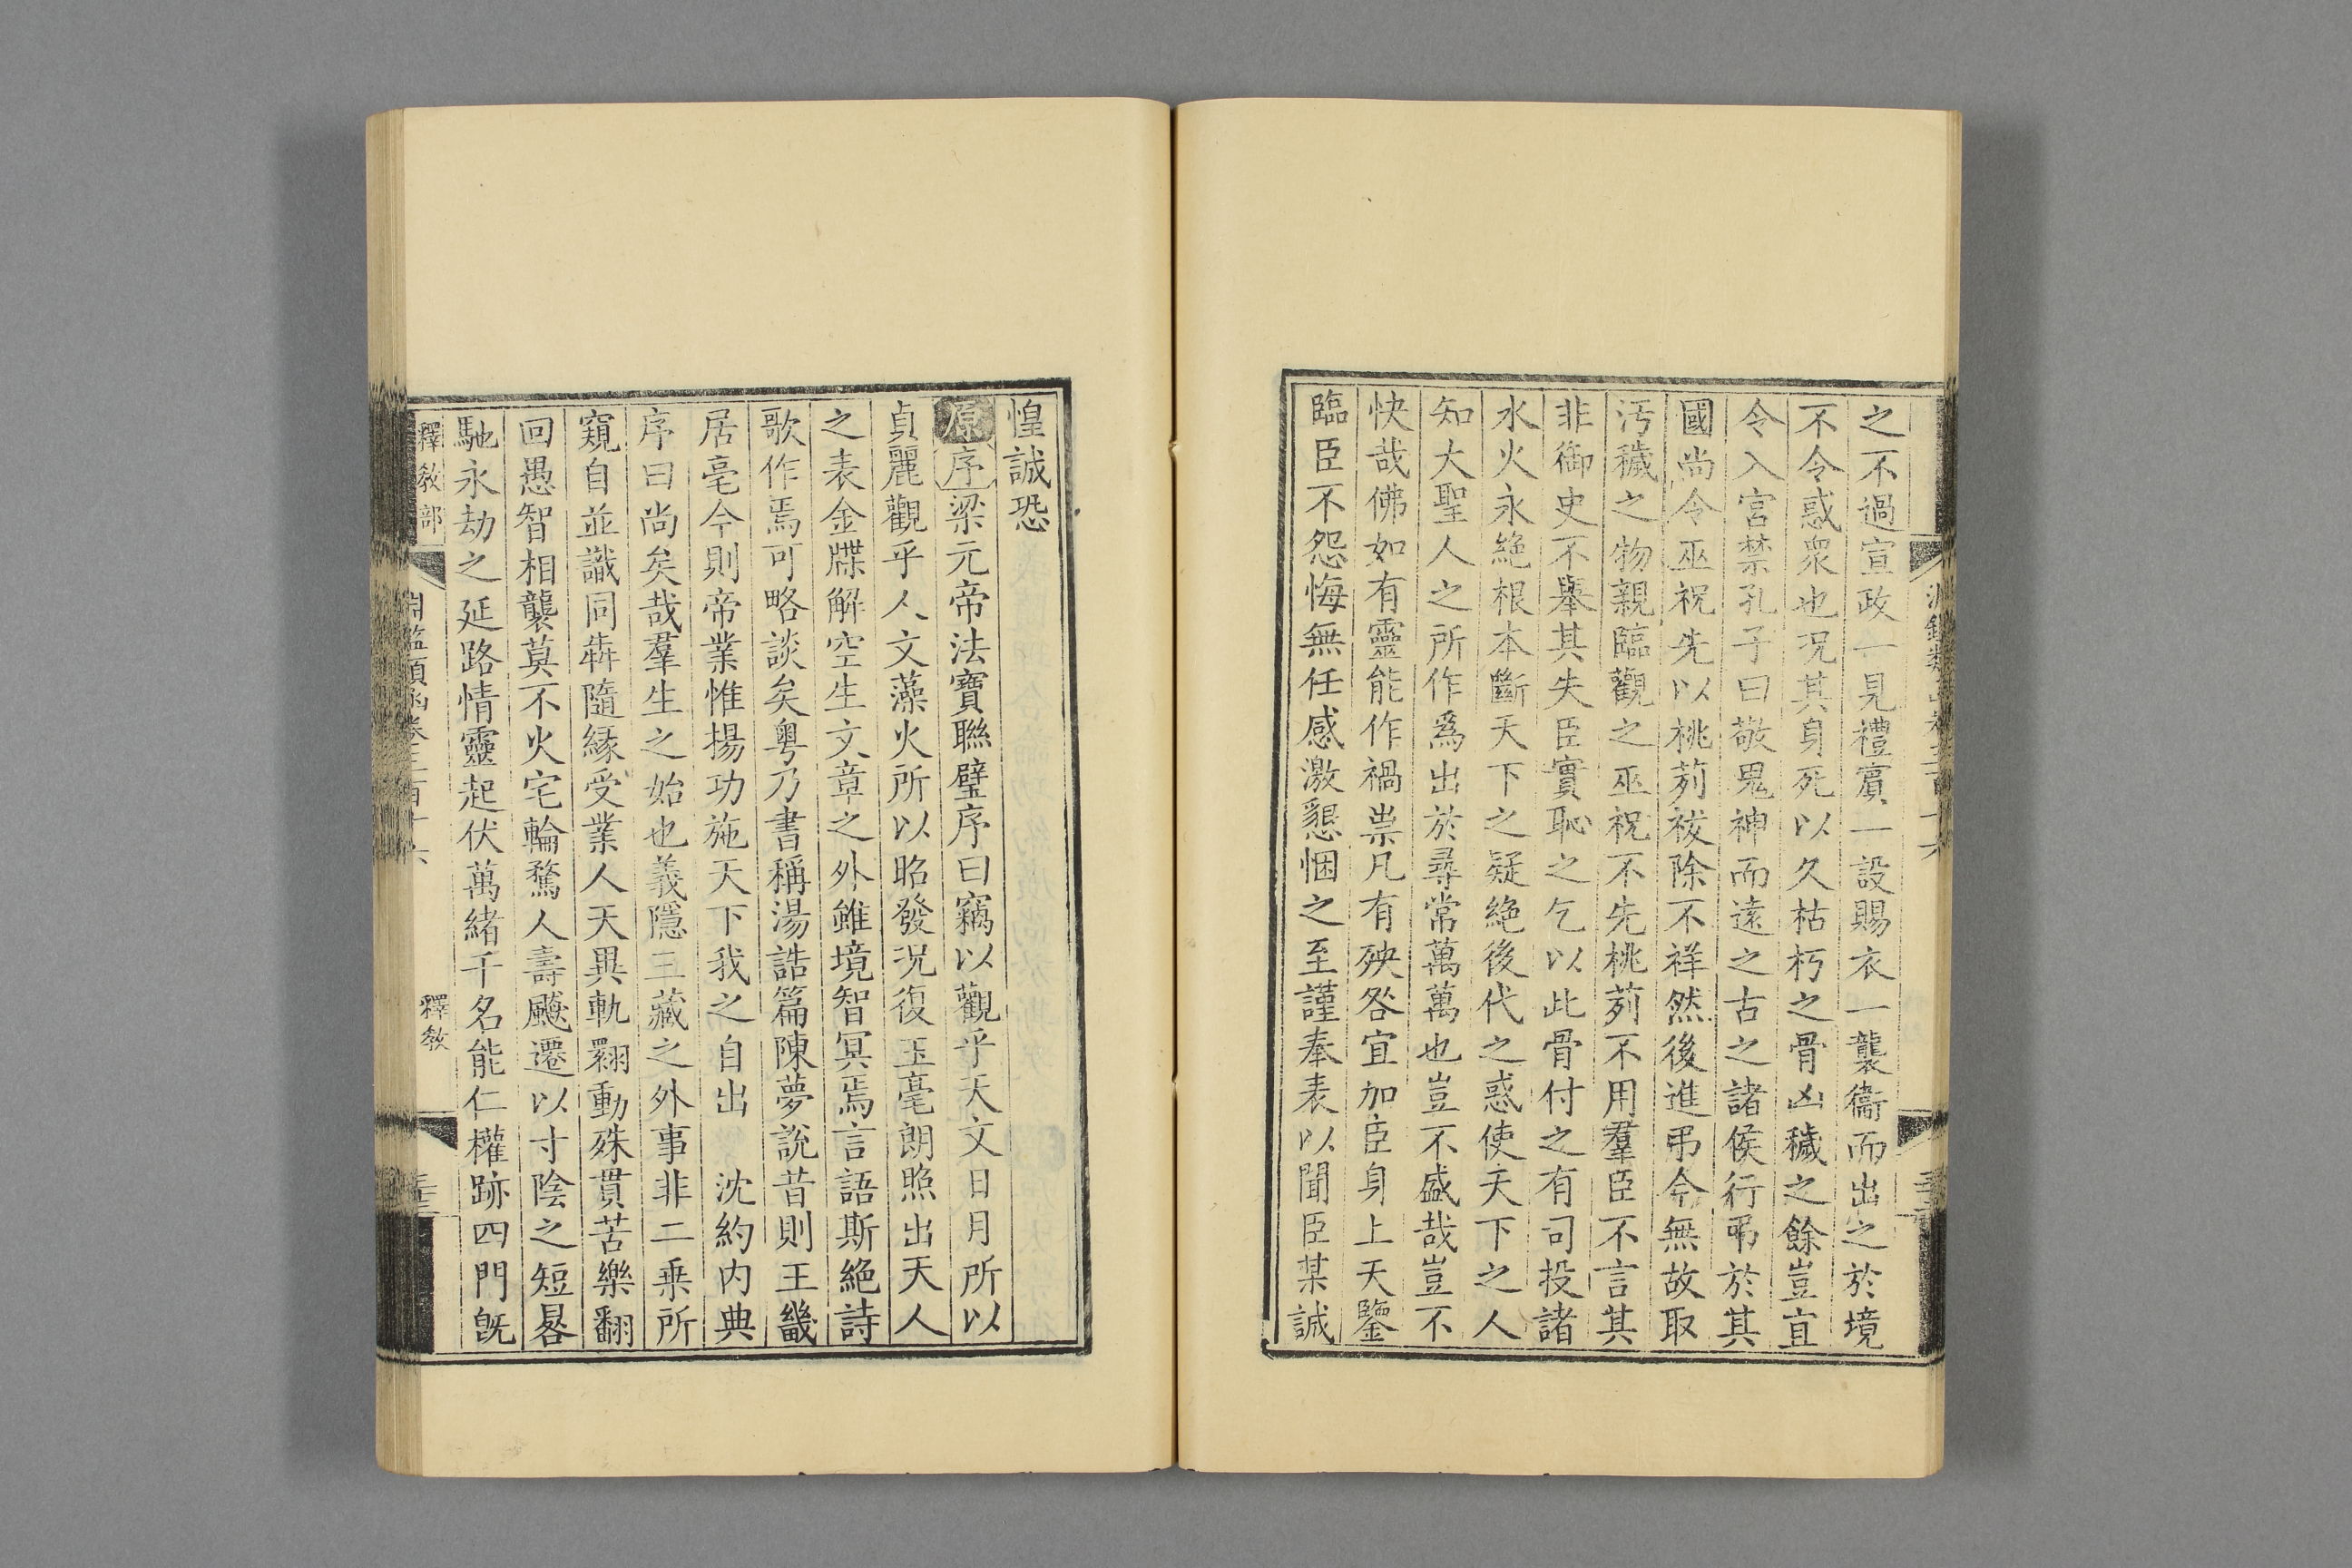 之不過宣政一見禮賔一設賜衣一襲衞而出之於境
不令惑衆也况其身死以久枯朽之骨凶穢之餘豈宜
令入宮禁孔子曰敬鬼神而遠之古之諸侯行弔於其
國尚令巫祝先以桃茢祓除不祥然後進弔今無故取
汚穢之物親臨觀之巫祝不先桃茢不用羣臣不言其
非御史不舉其失臣實恥之乞以此骨付之有司投諸
水火永絶根本斷天下之疑絶後代之惑使天下之人
知大聖人之所作爲出於尋常萬萬也豈不盛哉豈不
快哉佛如有靈能作禍祟凡有殃咎宜加臣身上天鑒
臨臣不怨悔無任感激懇悃之至謹奉表以聞臣某誠
惶誠恐
原序梁元帝法寶聯璧序曰竊以觀乎天文日月所以
貞麗觀乎人文藻火所以昭發况復玉毫朗照出天人
之表金牒解空生文章之外雖境智冥焉言語斯絶詩
歌作焉可略談矣粤乃書稱湯誥篇陳夢說昔則王畿
居亳今則帝業惟揚功施天下我之自出 沈約内典
序曰尚矣哉羣生之始也義隱三藏之外事非二乗所
窺自並識同犇隨縁受業人天異軌翾動殊貫苦樂翻
回愚智相襲莫不火宅輪騖人壽飈遷以寸陰之短晷
馳永劫之延路情靈起伏萬緒千名能仁權跡四門旣
釋敎部
淵鑑類函卷三百十六
釋敎